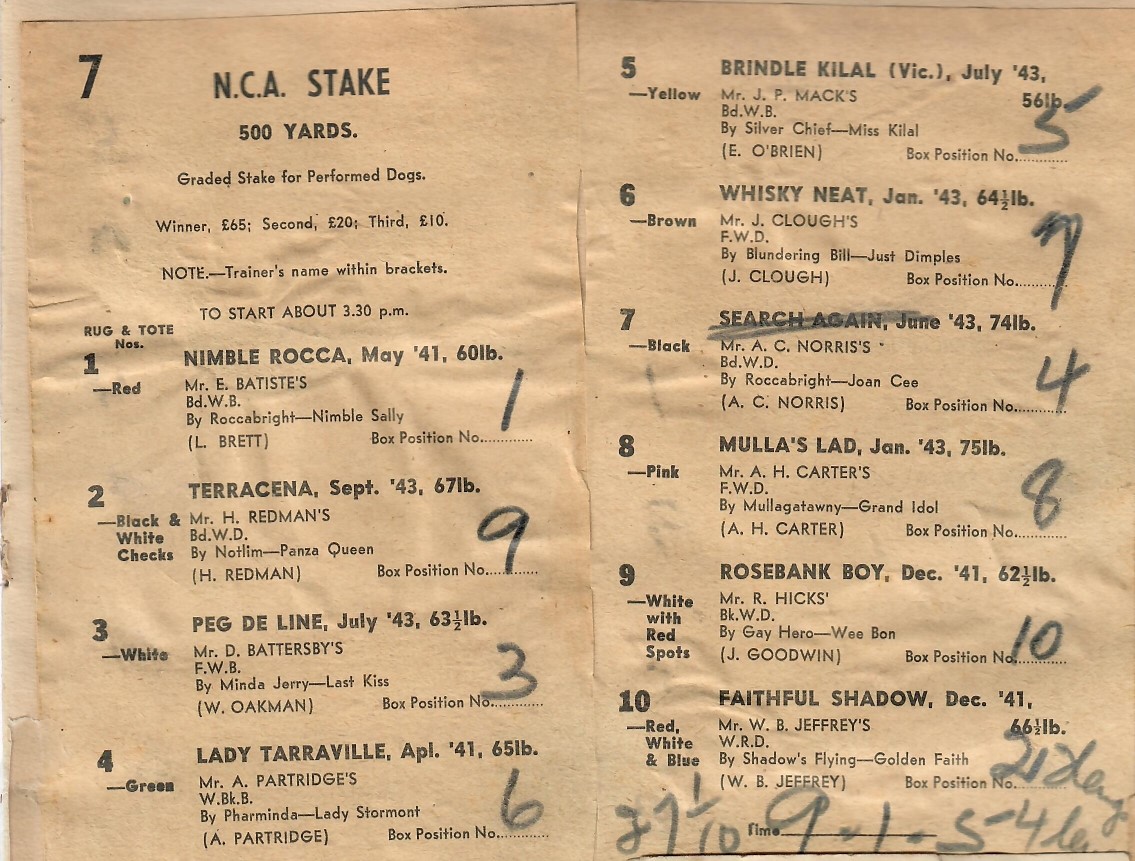 7
N.C.A. STAKE
500 YARDS.
Graded Stake for Performed Dogs.
Winner, £65; Second, £20; Third, £10.
NOTE.—Trainer's name within brackets.
TO START ABOUT 3.30 p.m.
RUG & TOTE
Nos.
1 NIMBLE ROCCA, May '41, 60lb.
—Red Mr. E. BATISTE'S
Bd.W.B.
By Roccabright—Nimble Sally
(L. BRETT) Box Position No............ 1
2 TERRACENA, Sept. '43, 67lb.
—Black & Mr. H. REDMAN'S
White Bd.W.D.
Checks By Notlim—Panza Queen
(H. REDMAN) Box Position No............ 9
3 PEG DE LINE, July '43, 63½lb.
—White Mr. D. BATTERSBY'S
F.W.B.
By Minda Jerry—Last Kiss
(W. OAKMAN) Box Position No............ 3
4 LADY TARRAVILLE, Apl. '41, 65lb.
—Green Mr. A. PARTRIDGE'S
W.Bk.B.
By Pharminda—Lady Stormont
(A. PARTRIDGE) Box Position No............ 6
5 BRINDLE KILAL (Vic.), July '43,
—Yellow Mr. J. P. MACK'S 56lb.
Bd.W.B.
By Silver Chief—Miss Kilal
(E. O'BRIEN) Box Position No............ 5
6 WHISKY NEAT, Jan. '43, 64½lb.
—Brown Mr. J. CLOUGH'S
F.W.D.
By Blundering Bill—Just Dimples
(J. CLOUGH) Box Position No............ 7
7 SEARCH AGAIN, June '43, 74lb.
—Black Mr. A. C. NORRIS'S
Bd.W.D.
By Roccabright—Joan Cee
(A. C. NORRIS) Box Position No............ 4
8 MULLA'S LAD, Jan. '43, 75lb.
—Pink Mr. A. H. CARTER'S
F.W.D.
By Mullagatawny—Grand Idol
(A. H. CARTER) Box Position No............ 8
9 ROSEBANK BOY, Dec. '41, 62½lb.
—White Mr. R. HICKS'
with Bk.W.D.
Red By Gay Hero—Wee Bon
Spots (J. GOODWIN) Box Position No............ 10
10 FAITHFUL SHADOW, Dec. '41,
—Red, Mr. W. B. JEFFREY'S 66½lb.
White W.R.D.
& Blue By Shadow's Flying—Golden Faith
(W. B. JEFFREY) Box Position No............ 2
27 1/10 Time 9 - 1 - 5 - 4